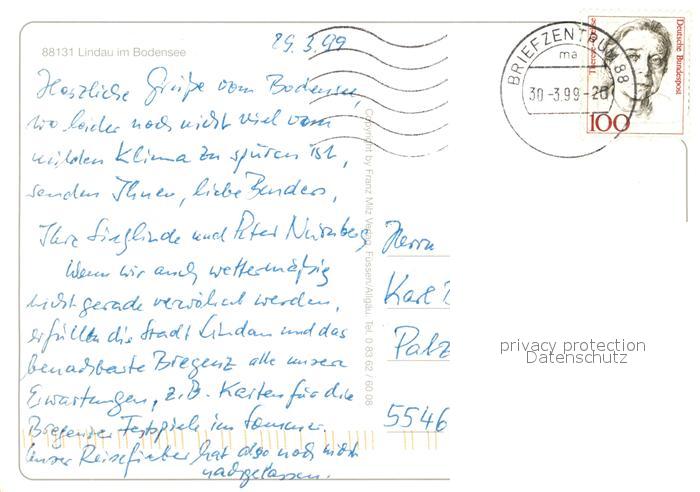 29.3.99
88131 Lindau im Bodensee
Herzliche Grüße vom Bodensee,
wo leider noch nicht viel vom
milden Klima zu spüren ist,
senden Ihnen, liebe Benders,
Ihre Sieglinde und Peter Nürnberg
Wenn wir auch wettermäßig
nicht gerade verwöhnt werden,
erfüllen die Stadt Lindau und das
benachbarte Bregenz alle unsere
Erwartungen, z.B. Karten für die
Bregenzer Festspiele im Sommer.
Unser Reisefieber hat also noch nicht
nachgelassen.
Copyright by Franz Milz Verlag, Füssen/Allgäu, Tel. 0 83 62 / 60 08
Herrn
Karl B
Palz
5546
BRIEFZENTRUM 88
ma
30-3.99-20
Deutsche Bundespost
100
privacy protection
Datenschutz